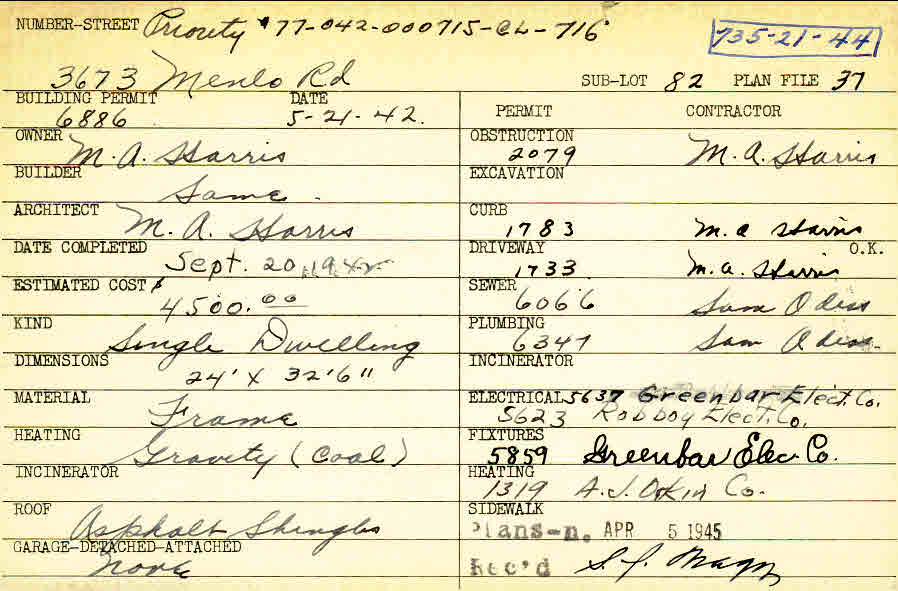 NUMBER-STREET Priority 77-042-000715-CL-716
735-21-44
3673 Menlo Rd SUB-LOT 82 PLAN FILE 37
BUILDING PERMIT DATE PERMIT CONTRACTOR
6886 5-21-42.
OWNER OBSTRUCTION
M. A. Harris 2079 M. A. Harris
BUILDER EXCAVATION
Same
ARCHITECT CURB
M. A. Harris 1783 M. A Harris
DATE COMPLETED DRIVEWAY O.K.
Sept. 20 1942 1733 M. A. Harris
ESTIMATED COST $ SEWER
4500.00 6066 Sam
KIND PLUMBING
Single Dwelling 6347 Sam
DIMENSIONS INCINERATOR
24' X 32'6"
MATERIAL ELECTRICAL 5637 Greenbar Elect. Co.
Frame 5623 Robboy Elect. Co.
HEATING FIXTURES
Gravity (Coal) 5859 Greenbar Elec Co.
INCINERATOR HEATING
1319 A. J. Orkin Co.
ROOF SIDEWALK
Asphalt Shingles Plans-n. APR 5 1945
GARAGE-DETACHED-ATTACHED
None Rec'd S. J.